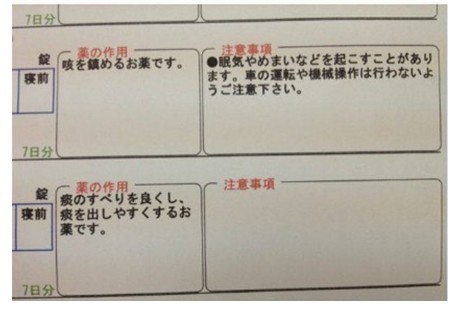 7日分
錠
寝前
薬の作用
咳を鎮めるお薬です。
注意事項
●眠気やめまいなどを起こすことがあり
ます。車の運転や機械操作は行わないよ
うご注意下さい。
7日分
錠
寝前
薬の作用
痰のすべりを良くし、
痰を出しやすくするお
薬です。
注意事項
7日分